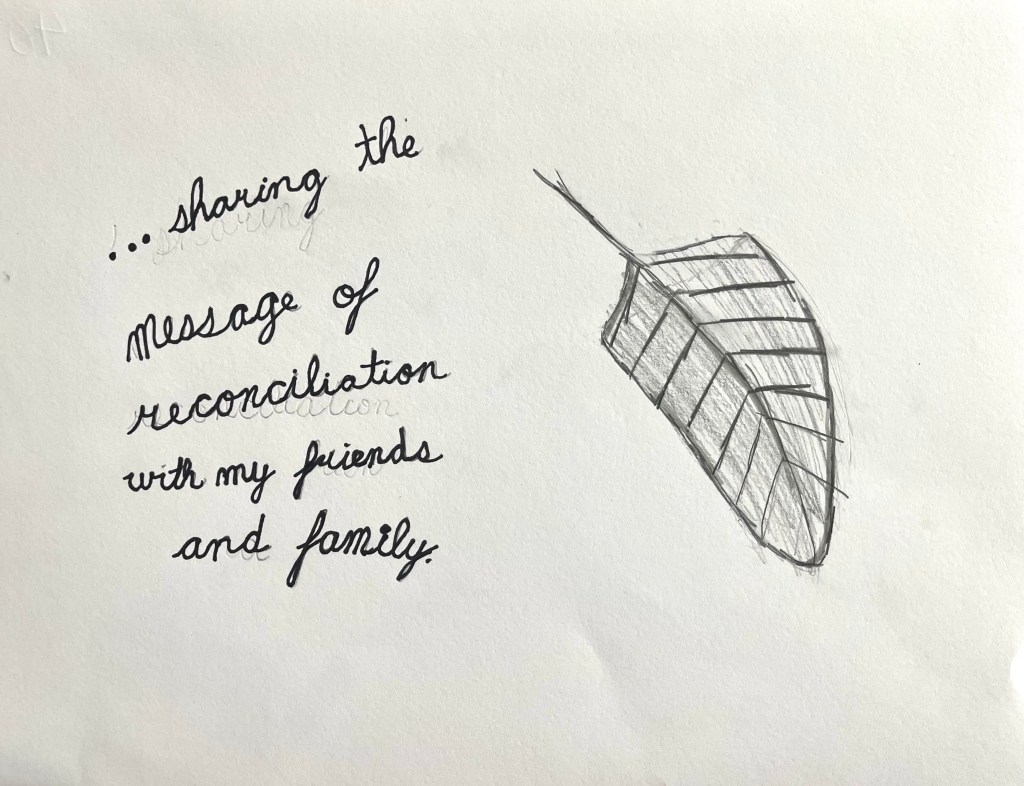 ...sharing the
message of
reconciliation
with my friends
and family.